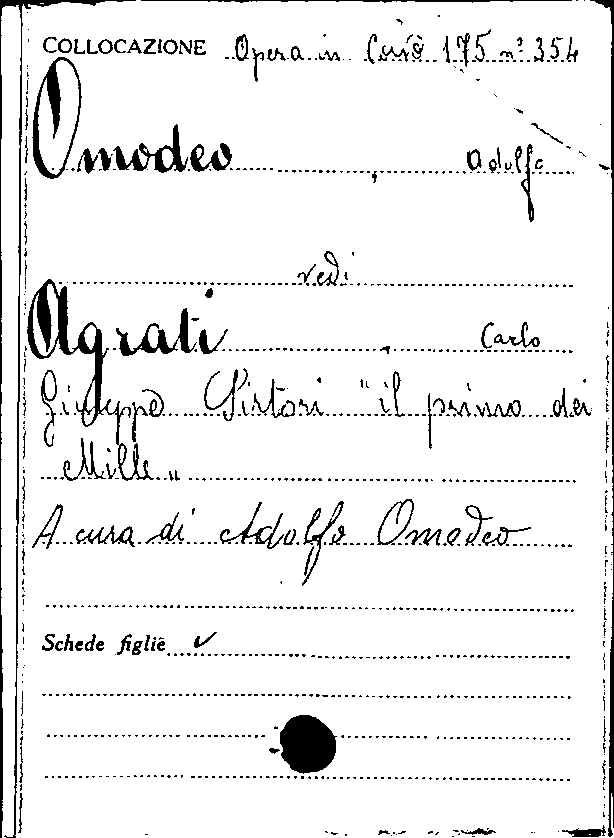 COLLOCAZIONE Opera in Corso 175 n° 354
Omodeo, Adolfo
vedi
Agrati, Carlo
Giuseppe Sirtori "il primo dei
Mille"
A cura di Adolfo Omodeo
Schede figlie ✓